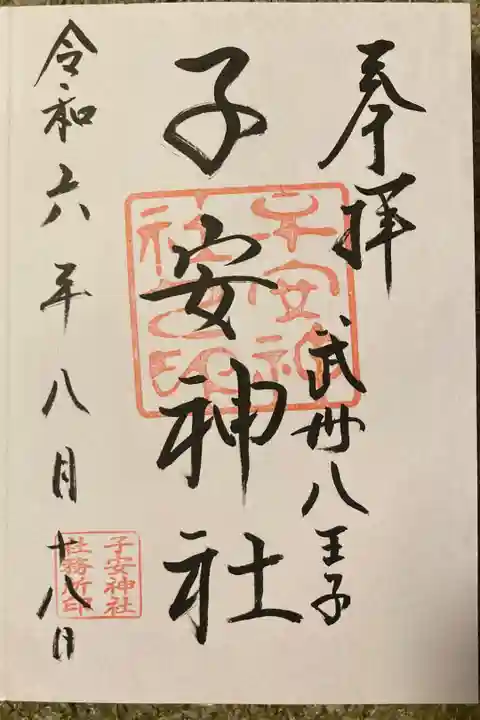 奉拝
武州八王子
子安神社
令和六年八月十八日
子安神
社之印
子安神社
社務所印